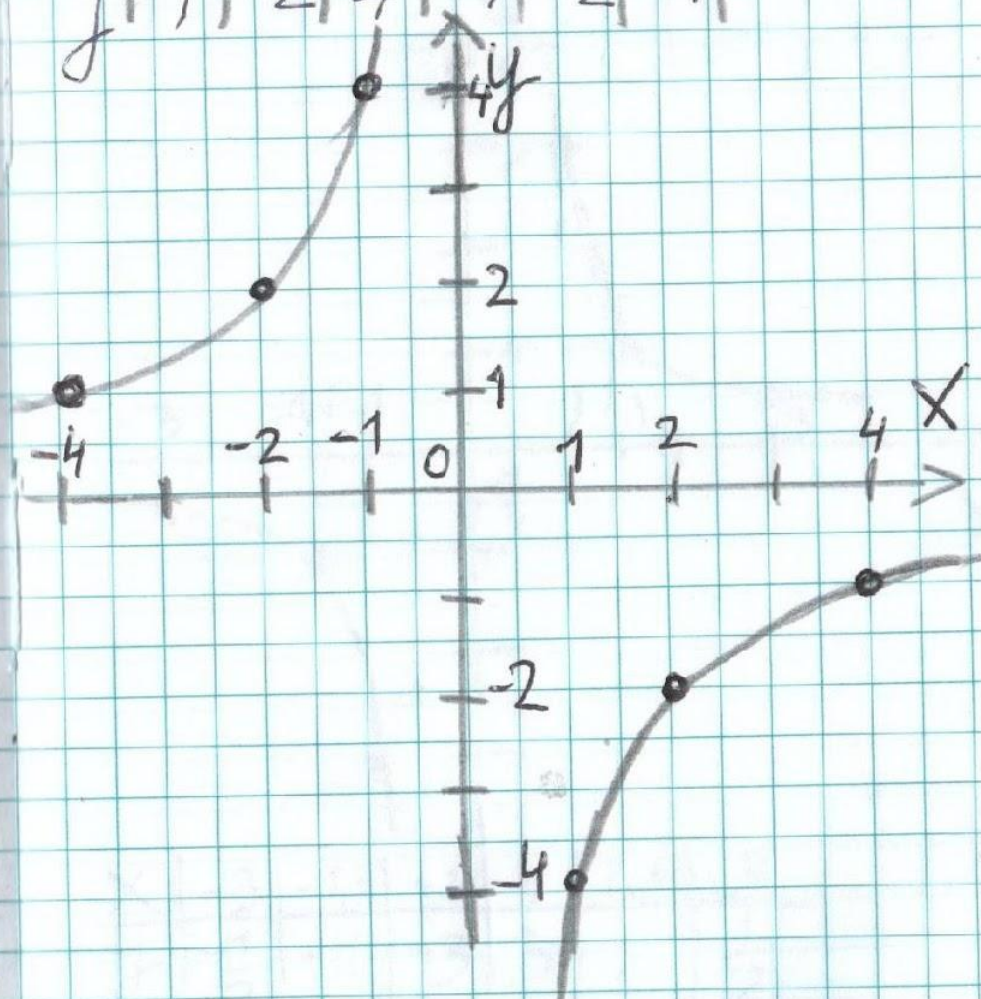 y
4
2
1
X
-4 -2 -1 0 1 2 4
-2
-4